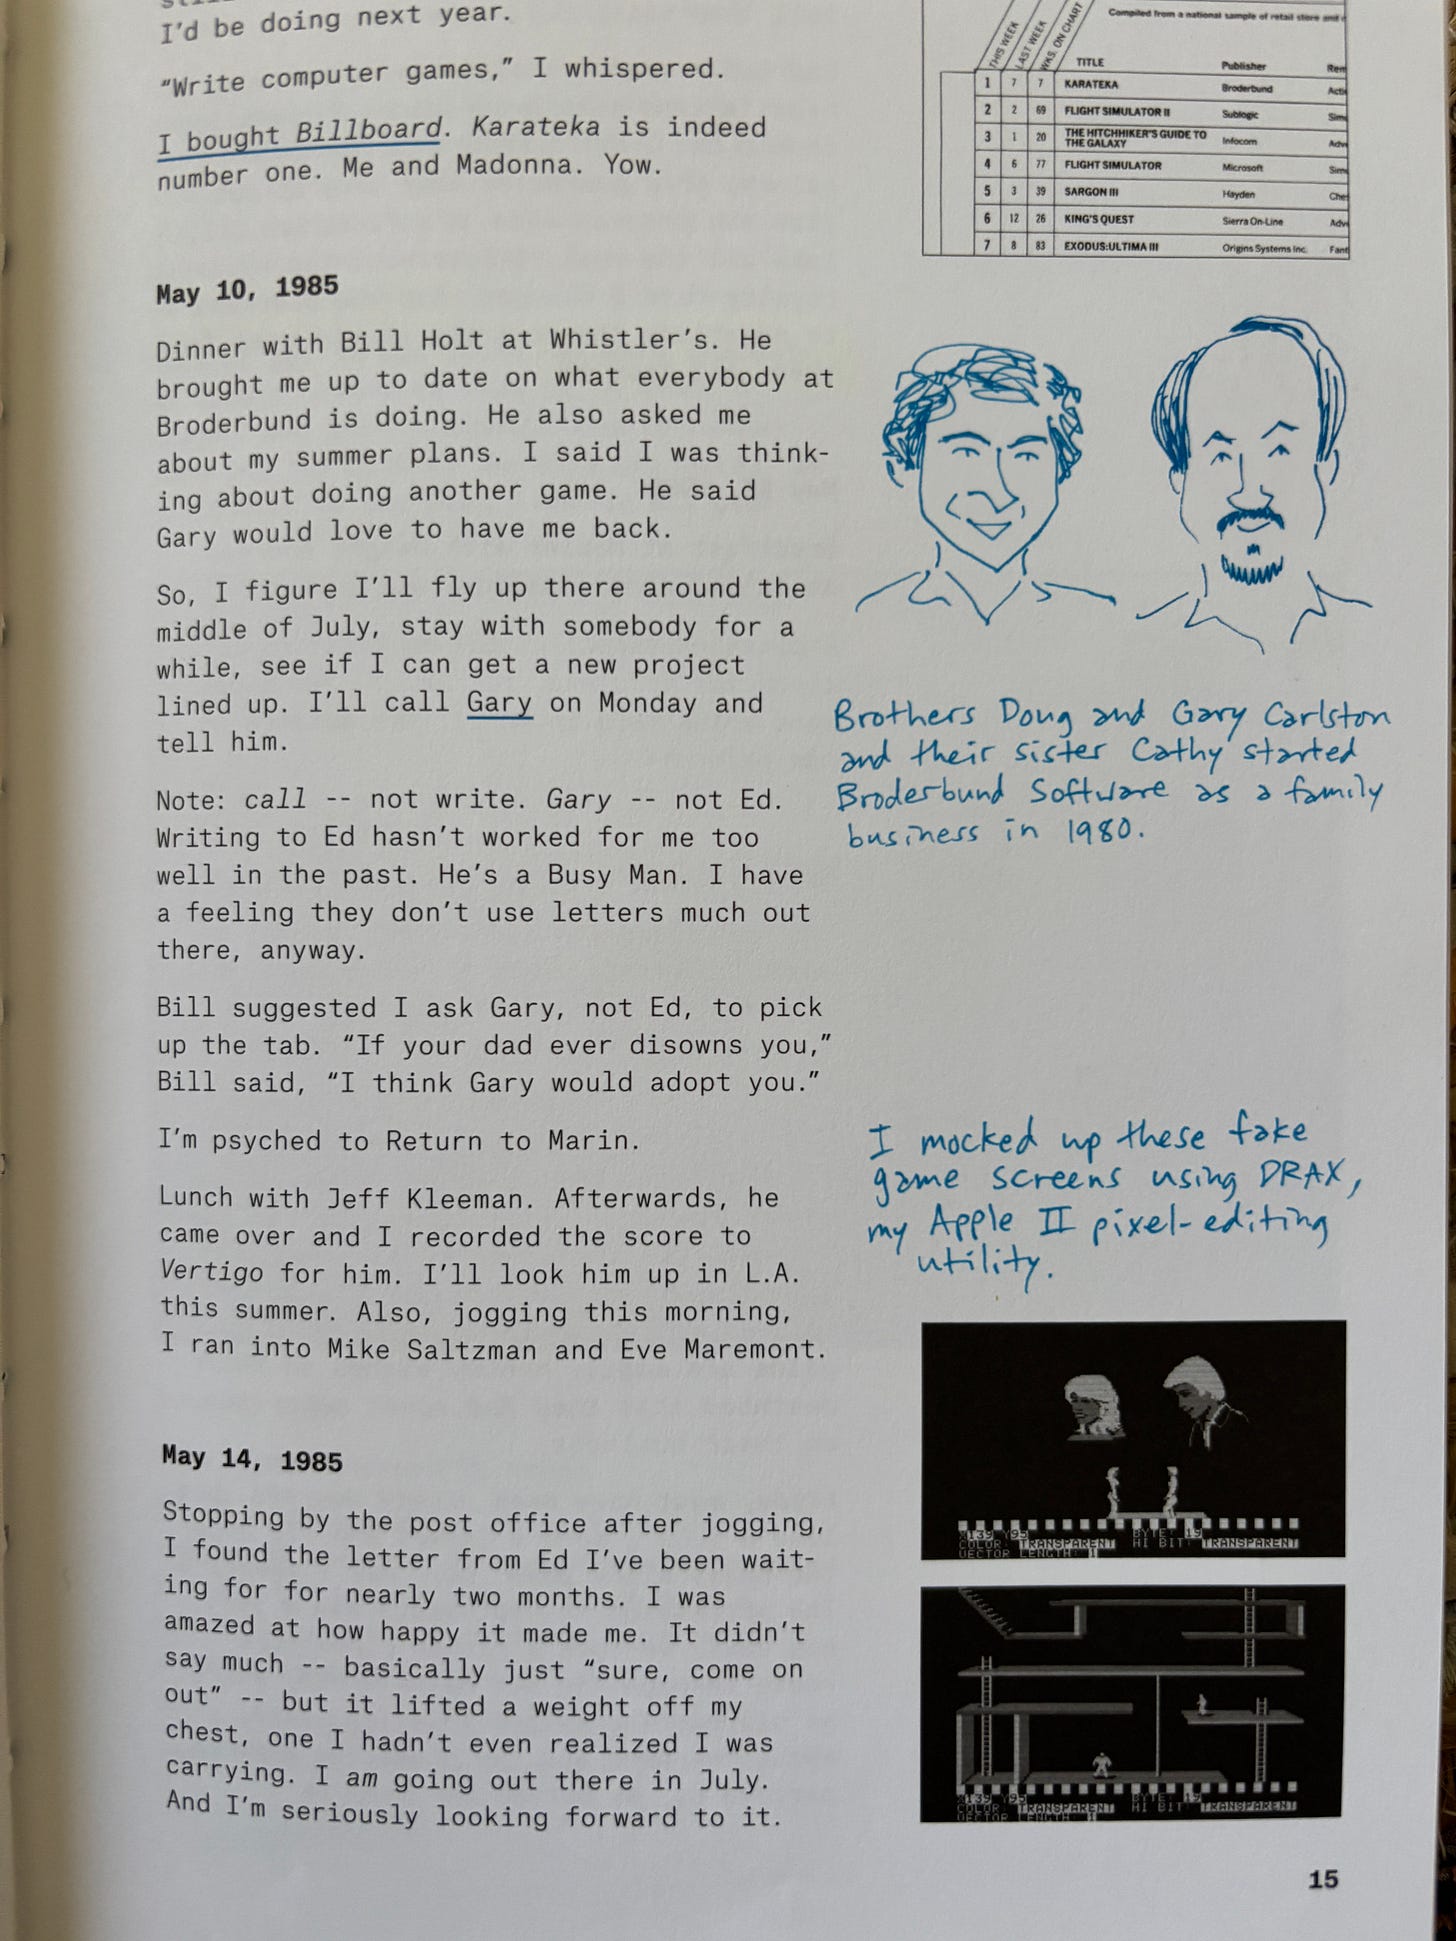 I'd be doing next year.
“Write computer games,” I whispered.
I bought Billboard. Karateka is indeed
number one. Me and Madonna. Yow.
May 10, 1985
Dinner with Bill Holt at Whistler’s. He
brought me up to date on what everybody at
Broderbund is doing. He also asked me
about my summer plans. I said I was think-
ing about doing another game. He said
Gary would love to have me back.
So, I figure I’ll fly up there around the
middle of July, stay with somebody for a
while, see if I can get a new project
lined up. I’ll call Gary on Monday and
tell him.
Note: call -- not write. Gary -- not Ed.
Writing to Ed hasn’t worked for me too
well in the past. He’s a Busy Man. I have
a feeling they don’t use letters much out
there, anyway.
Bill suggested I ask Gary, not Ed, to pick
up the tab. “If your dad ever disowns you,”
Bill said, “I think Gary would adopt you.”
I’m psyched to Return to Marin.
Lunch with Jeff Kleeman. Afterwards, he
came over and I recorded the score to
Vertigo for him. I’ll look him up in L.A.
this summer. Also, jogging this morning,
I ran into Mike Saltzman and Eve Maremont.
May 14, 1985
Stopping by the post office after jogging,
I found the letter from Ed I’ve been wait-
ing for for nearly two months. I was
amazed at how happy it made me. It didn’t
say much -- basically just “sure, come on
out” -- but it lifted a weight off my
chest, one I hadn’t even realized I was
carrying. I am going out there in July.
And I’m seriously looking forward to it.
Compiled from a national sample of retail store and
THIS WEEK LAST WEEK WKS. ON CHART TITLE Publisher Rem
1 7 7 KARATEKA Broderbund Acti
2 2 69 FLIGHT SIMULATOR II Sublogic Sim
3 1 20 THE HITCHHIKER'S GUIDE TO
THE GALAXY Infocom Adv
4 6 77 FLIGHT SIMULATOR Microsoft Sim
5 3 39 SARGON III Hayden Che
6 12 26 KING'S QUEST Sierra On-Line Adv
7 8 83 EXODUS:ULTIMA III Origins Systems Inc. Fant
Brothers Doug and Gary Carlston
and their sister Cathy started
Broderbund Software as a family
business in 1980.
I mocked up these fake
game screens using DRAX,
my Apple II pixel-editing
utility.
X139 Y95 BYTE: 19
COLOR: TRANSPARENT HI BIT: TRANSPARENT
VECTOR LENGTH: 1
X139 Y95 BYTE: 19
COLOR: TRANSPARENT HI BIT: TRANSPARENT
VECTOR LENGTH: 1
15